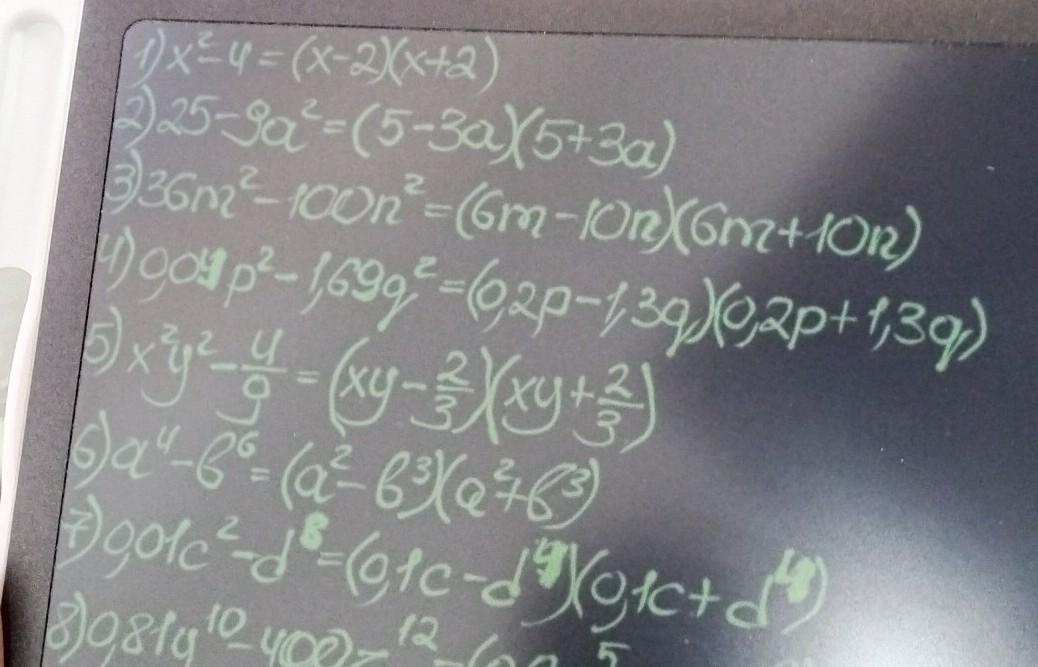 1) x² - 4 = (x-2)(x+2)
2) 25 - 9a² = (5-3a)(5+3a)
3) 36m² - 100n² = (6m-10n)(6m+10n)
4) 0,04p² - 1,69q² = (0,2p-1,3q)(0,2p+1,3q)
5) x²y² - 4/9 = (xy - 2/3)(xy + 2/3)
6) a⁴ - b⁶ = (a² - b³)(a² + b³)
7) 0,01c² - d⁸ = (0,1c - d⁴)(0,1c + d⁴)
8) 0,81y¹⁰ - 400z¹² = (